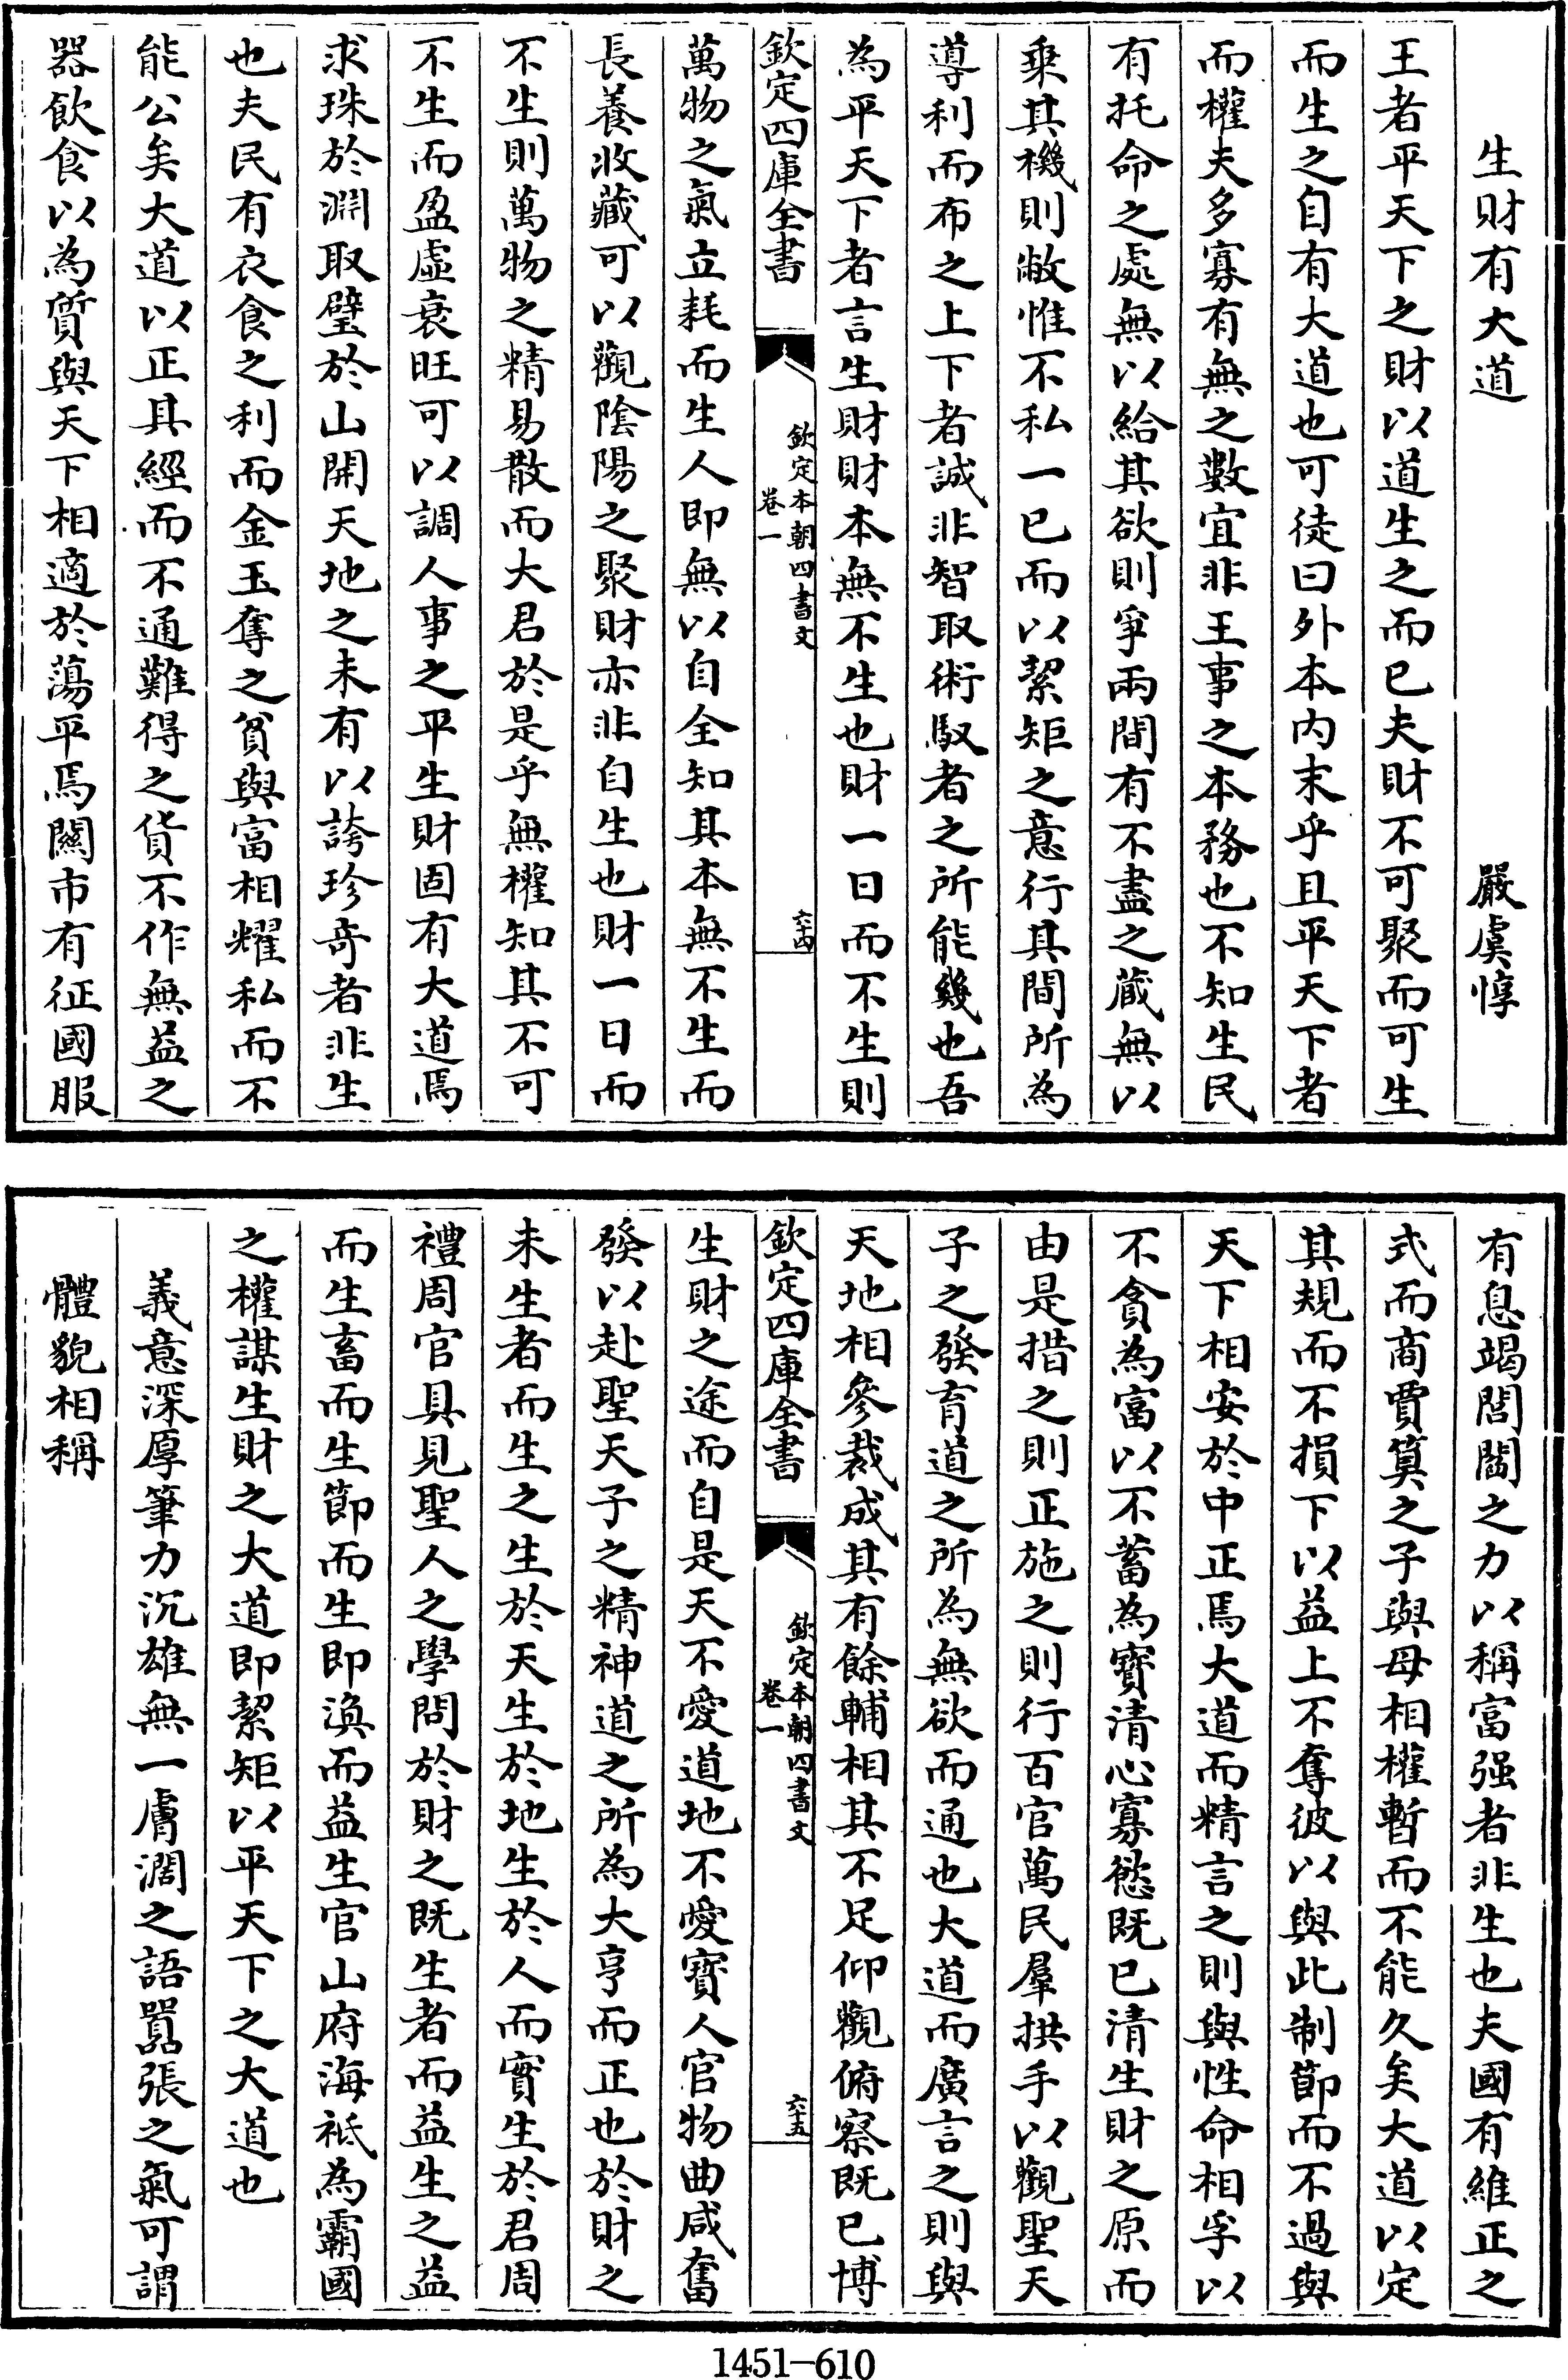 生財有大道　嚴虞惇
王者平天下之財以道生之而已夫財不可聚而可生
而生之自有大道也可徒曰外本内末乎且平天下者
而權夫多寡有無之數宜非王事之本務也不知生民
有托命之處無以給其欲則爭兩間有不盡之藏無以
乗其機則敝惟不私一已而以絜矩之意行其間所為
導利而布之上下者誠非智取術馭者之所能幾也吾
為平天下者言生財財本無不生也財一日而不生則
欽定四庫全書
欽定本朝四書文
卷一
六十四
萬物之氣立耗而生人即無以自全知其本無不生而
長養收藏可以觀陰陽之聚財亦非自生也財一日而
不生則萬物之精易散而大君於是乎無權知其不可
不生而盈虛衰旺可以調人事之平生財固有大道焉
求珠於淵取璧於山開天地之未有以誇珍奇者非生
也夫民有衣食之利而金玉奪之貧與富相耀私而不
能公矣大道以正具經而不通難得之貨不作無益之
器飲食以為質與天下相適於蕩平焉關市有征國服
有息竭閭閻之力以稱富强者非生也夫國有維正之
式而商賈算之子與母相權暫而不能久矣大道以定
其規而不損下以益上不奪彼以與此制節而不過與
天下相安於中正焉大道而精言之則與性命相孚以
不貪為富以不蓄為寶清心寡慾既已清生財之原而
由是措之則正施之則行百官萬民羣拱手以觀聖天
子之發育道之所為無欲而通也大道而廣言之則與
天地相參裁成其有餘輔相其不足仰觀俯察既已博
欽定四庫全書
欽定本朝四書文
卷一
六十五
生財之途而自是天不愛道地不愛寶人官物曲咸奮
發以赴聖天子之精神道之所為大亨而正也於財之
未生者而生之生於天生於地生於人而實生於君周
禮周官具見聖人之學問於財之既生者而益生之益
而生畜而生節而生即渙而益生官山府海祗為霸國
之權謀生財之大道即絜矩以平天下之大道也
義意深厚筆力沉雄無一膚濶之語囂張之氣可謂
體貌相稱
1451—610